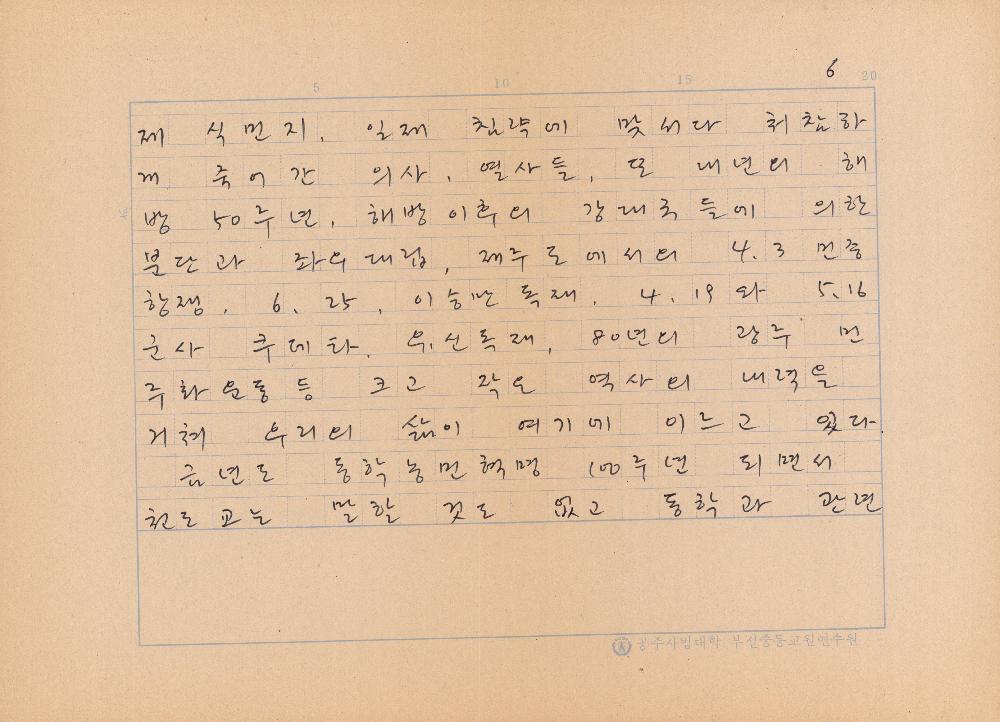 6
5 10 15 20
제 식민지, 일제 침략에 맞서다 처참하
게 죽어간 의사, 열사들, 또 내년의 해
방 50주년, 해방이후의 강대국들에 의한
분단과 좌우대립, 제주도에서의 4.3 민중
항쟁, 6.25, 이승만 독재, 4.19와 5.16
군사 쿠데타, 유신독재, 80년의 광주 민
주화운동등 크고 작은 역사의 내력을
거쳐 우리의 삶이 여기에 이르고 있다
금년도 동학농민혁명 100주년 되면서
천도교는 말할 것도 없고 동학과 관련
공주사범대학 부설중등교원연수원